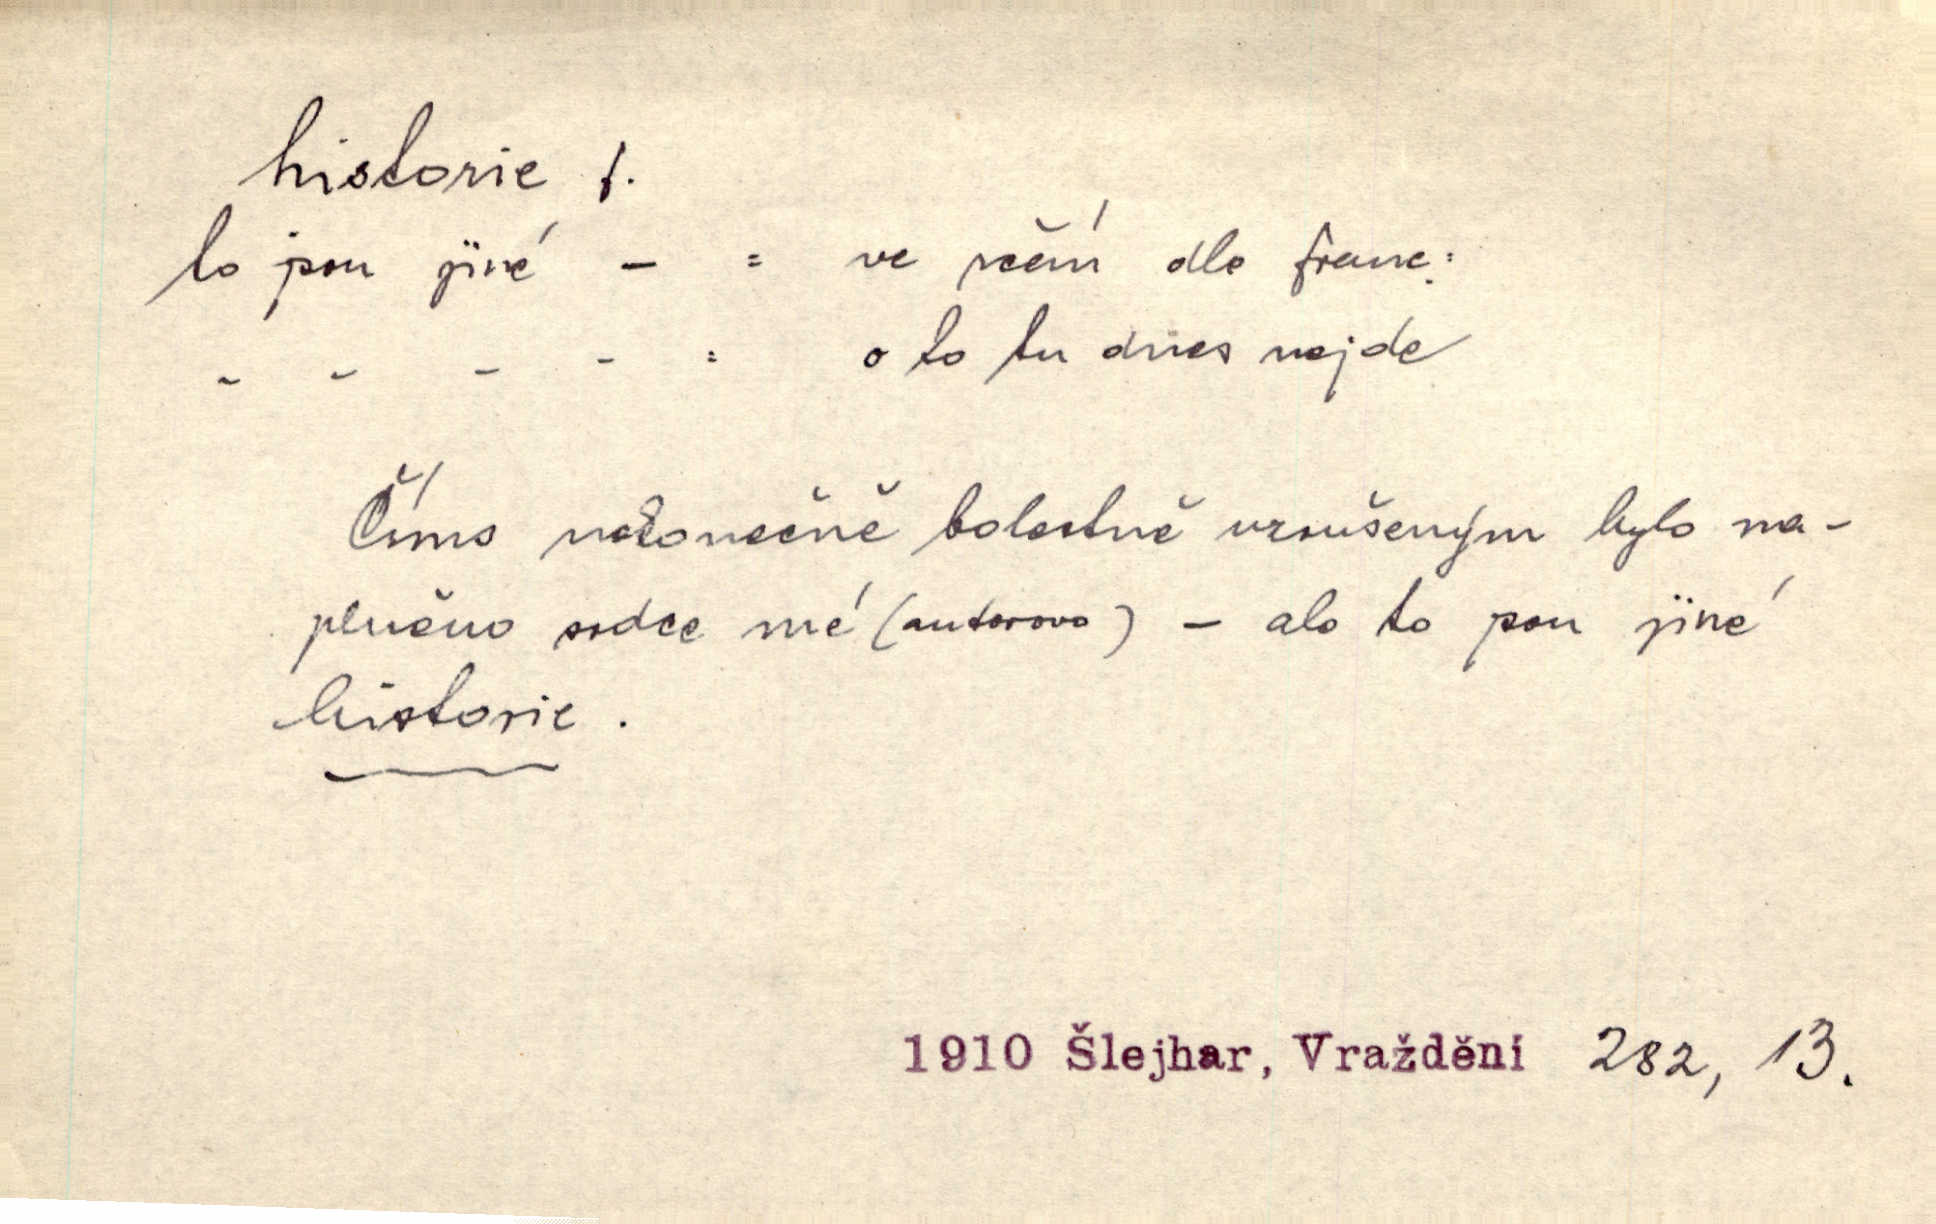 historie f.
to jsou jiné – = ve rčení dle franc.:
„ „ „ – = o to tu dnes nejde
Číms nekonečně bolestně vzrušeným bylo na-
plněno srdce mé (autorovo) – ale to jsou jiné
historie.
1910 Šlejhar, Vraždění 282, 13.